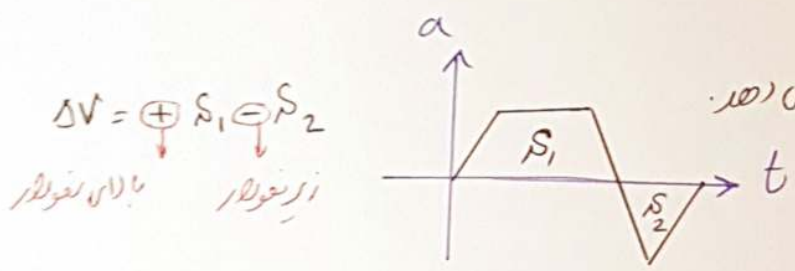 a
ΔV = ⊕ S₁ ⊖ S₂
بالای نمودار
زیر نمودار
S₁
S₂
t